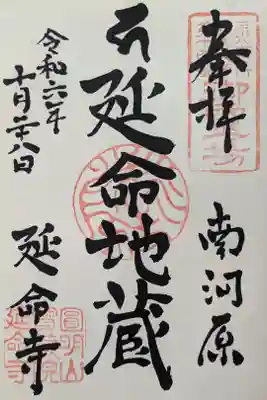 奉拝
南河原
延命地蔵
令和六年
十月二十八日
延命寺
圓明山
寶光院
延命寺